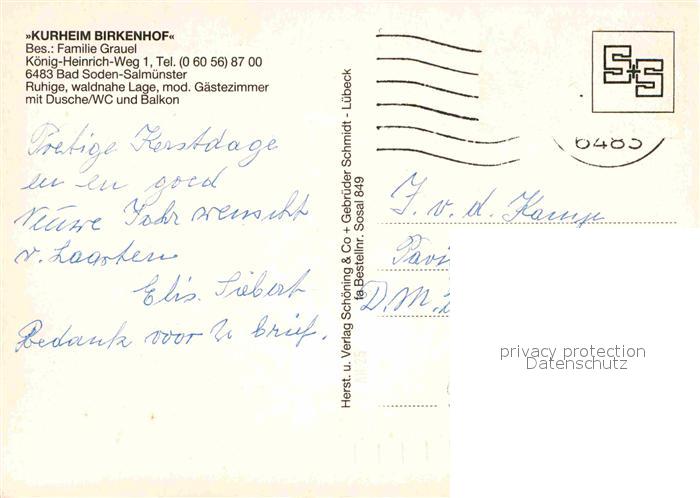 »KURHEIM BIRKENHOF«
Bes.: Familie Grauel
König-Heinrich-Weg 1, Tel. (0 60 56) 87 00
6483 Bad Soden-Salmünster
Ruhige, waldnahe Lage, mod. Gästezimmer
mit Dusche/WC und Balkon
Pretige Kerstdage
en en goed
Nieuwe Jahr wenscht
v. Laarten
Elis. Siebert
Bedank voor U brief.
Herst. u. Verlag Schöning & Co + Gebrüder Schmidt - Lübeck
fa Bestellnr. Sosal 849
S+S
6483
J. v. d. Kamp
Pavi
D.M.
privacy protection
Datenschutz